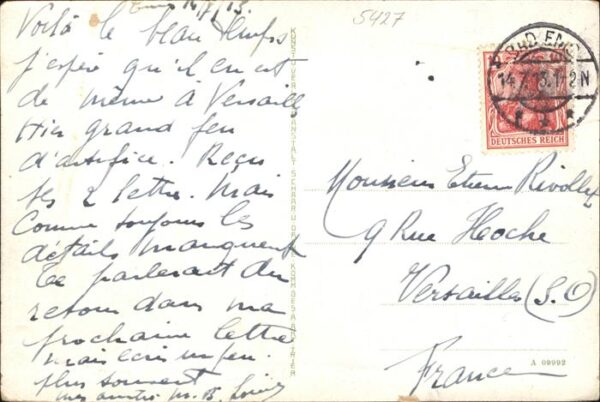 Ems 14/7/13.
Voilà le beau temps
j'espère qu'il en est
de même à Versaille
Hier grand feu
d'artifice. Reçu
tes 2 lettre. Mais
Comme toujours les
détails manquent
Te parlerait du
retour dans ma
prochaine lettre
mais écris un peu
plus souvent
mes amitiés M. B.
5427
BAD EMS
14.7.13.1-2N
DEUTSCHES REICH
Monsieur Etienne Rivollet
9 Rue Hoche
Versailles (S.O)
France
A 09992